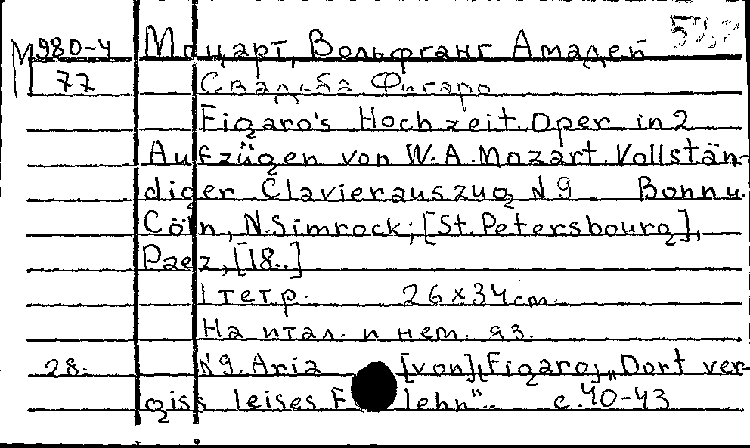 М 980-4 Моцарт, Вольфганг Амадей
77 Свадьба Фигаро
Figaro's Hochzeit. Oper in 2
Aufzügen von W.A. Mozart. Vollstän-
diger Clavierauszug N9 Bonn u.
Cöln, N. Simrock; [St. Petersbourg],
Paez, [18..]
1 тетр. 26x34 cm.
На итал. и нем. яз.
28. N9. Aria [von] "Figaro", "Dort ver-
giss leises lehn". с. 40-43